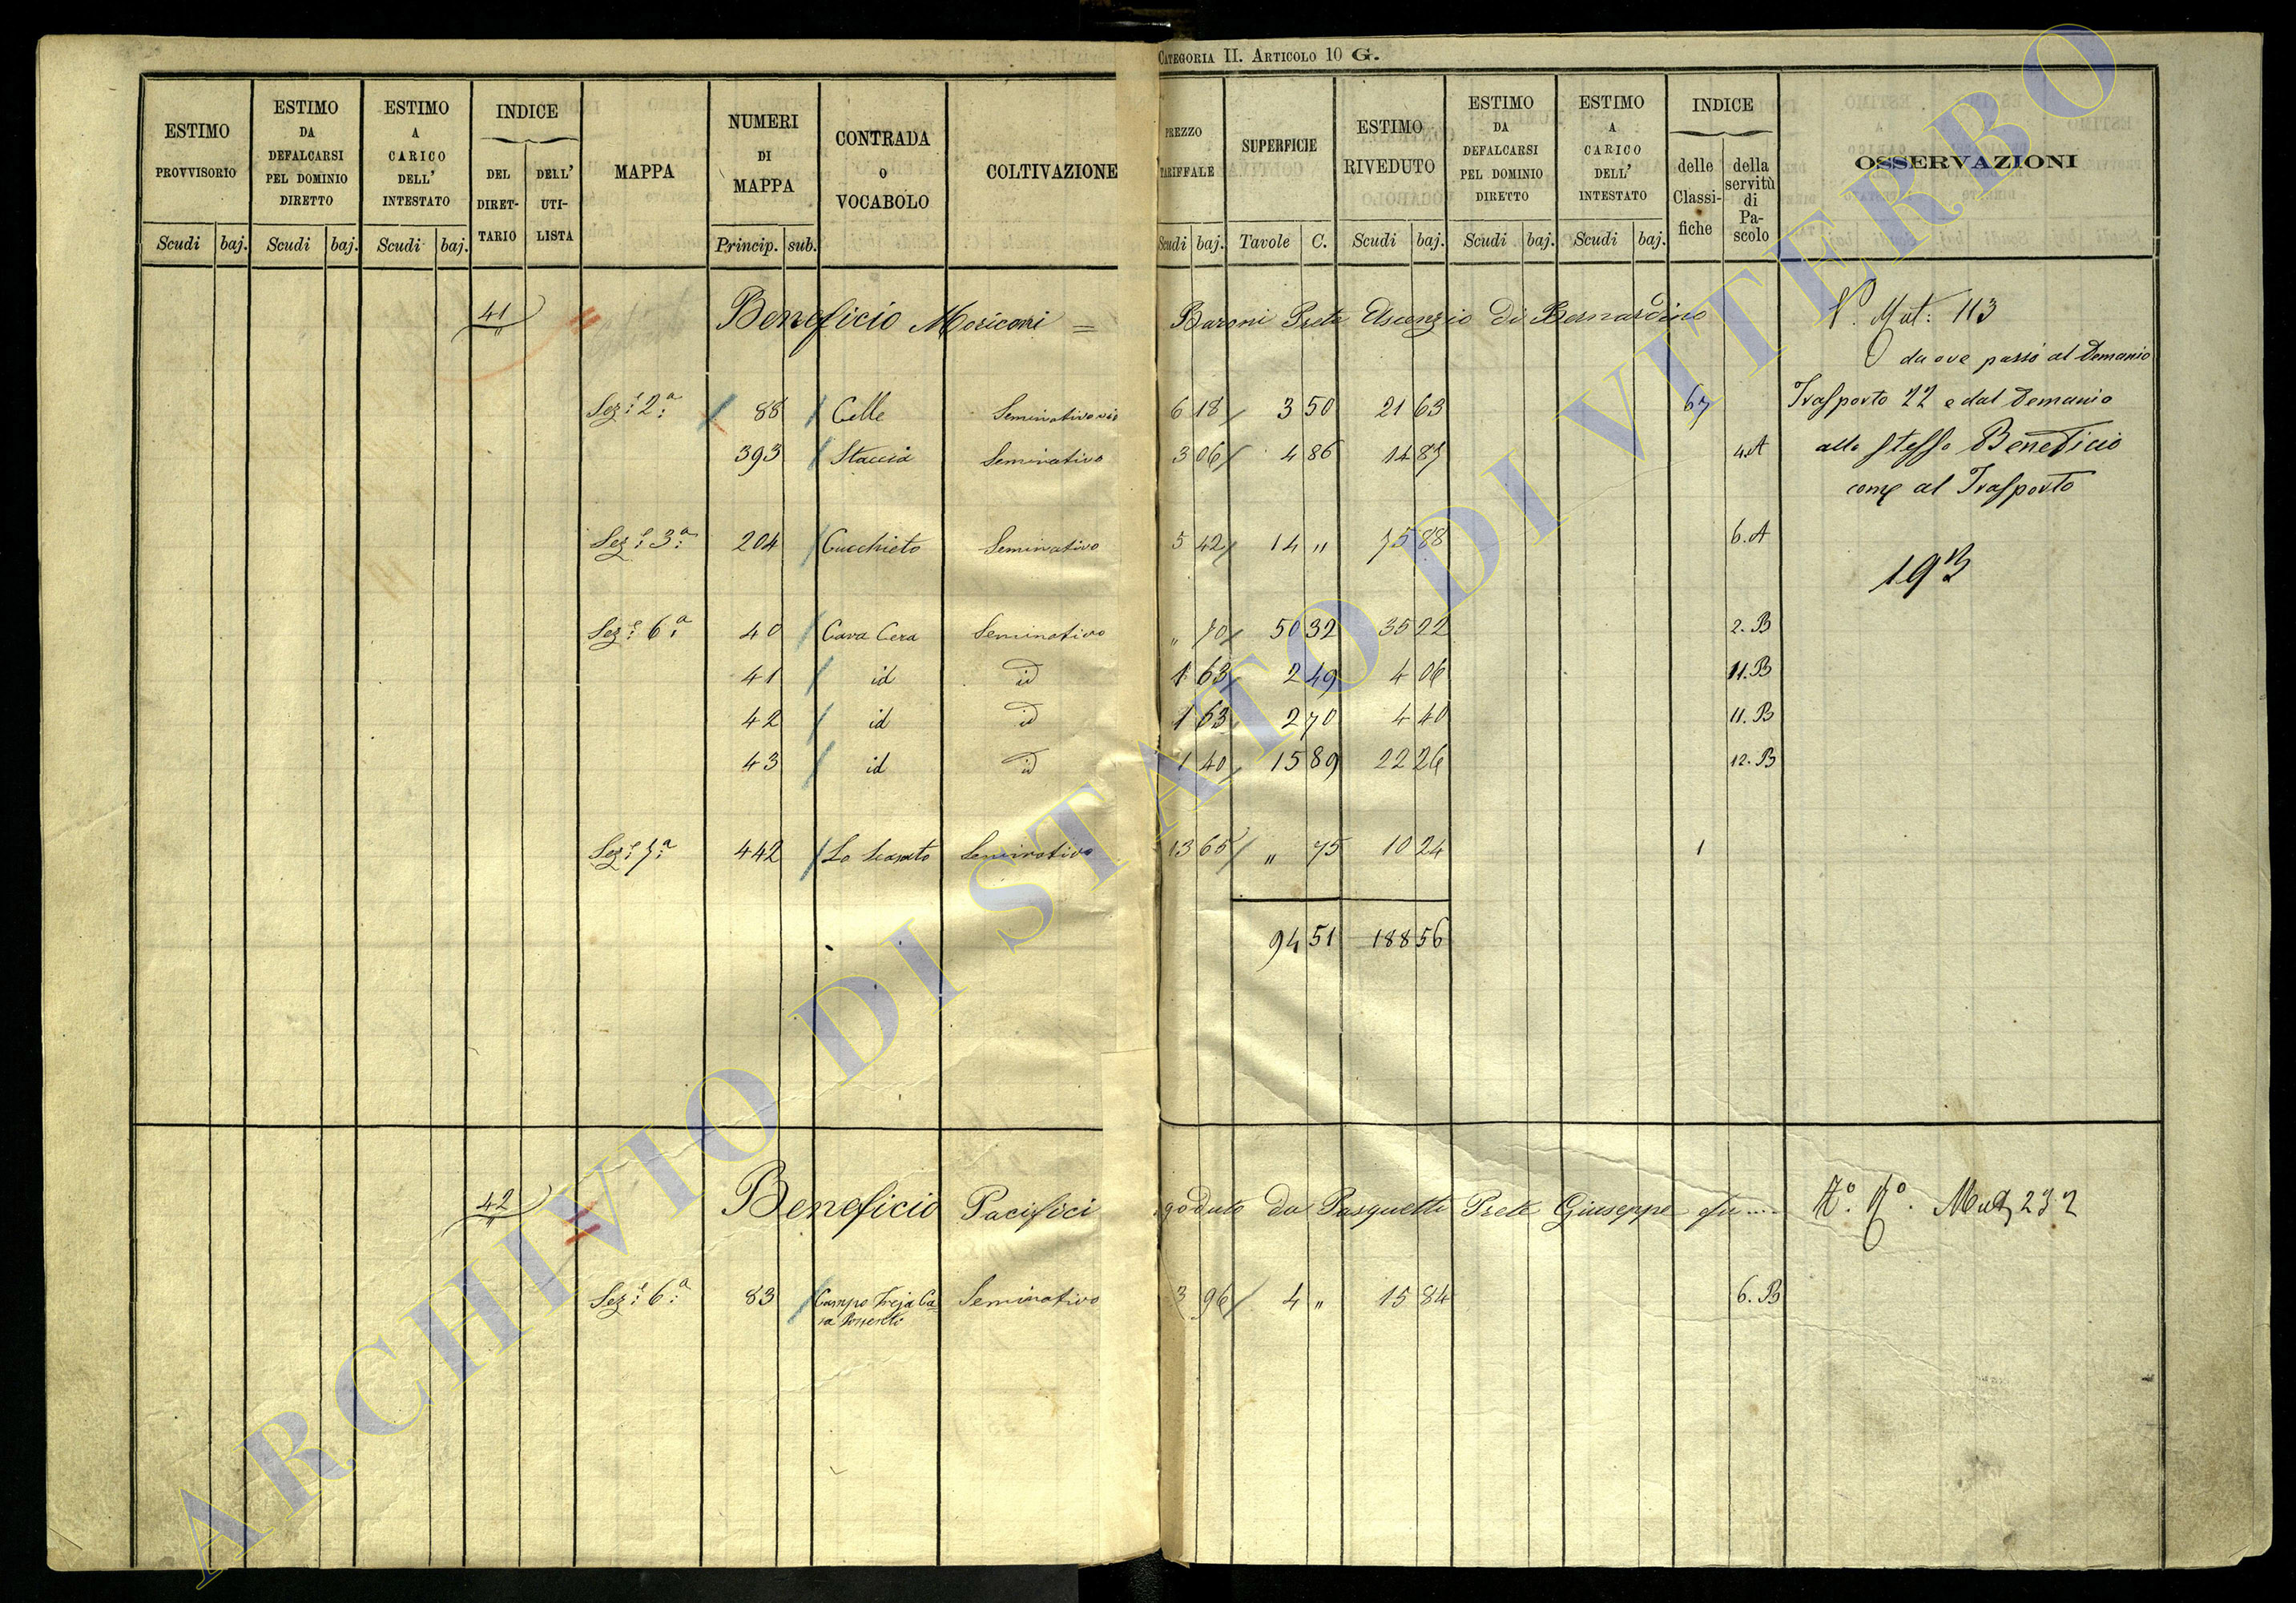 CATEGORIA II. ARTICOLO 10 G.
ESTIMO PROVVISORIO Scudi baj.
ESTIMO DA DEFALCARSI PEL DOMINIO DIRETTO Scudi baj.
ESTIMO A CARICO DELL' INTESTATO Scudi baj.
INDICE DEL DIRETTARIO DELL' UTILISTA
MAPPA
NUMERI DI MAPPA Princip. sub.
CONTRADA O VOCABOLO
COLTIVAZIONE
PREZZO TARIFFALE Scudi baj.
SUPERFICIE Tavole C.
ESTIMO RIVEDUTO Scudi baj.
ESTIMO DA DEFALCARSI PEL DOMINIO DIRETTO Scudi baj.
ESTIMO A CARICO DELL' INTESTATO Scudi baj.
INDICE delle Classifiche della servitù di Pascolo
OSSERVAZIONI
41 Beneficio Moriconi = Baroni Prete Ascenzio di Bernardino
V. Mut: 113
da ove passò al Demanio
Trasporto 22 e dal Demanio
allo stesso Beneficio
come al Trasporto
193
Sez.e 2.a 88 Celle Seminativo vit 6 18 3 50 21 63 67
393 Staccia Seminativo 3 06 4 86 14 87 4.A
Sez.e 3.a 204 Cucchieto Seminativo 5 42 14 " 75 88 6.A
Sez.e 6.a 40 Cava Cera Seminativo " 70 50 32 35 22 2.B
41 id id 1 63 2 49 4 06 11.B
42 id id 1 63 2 70 4 40 11.B
43 id id 1 40 15 89 22 26 12.B
Sez.e 7.a 442 Lo Scasato Seminativo 13 65 " 75 10 24 1
94 51 188 56
42 Beneficio Pacifici goduto da Pasquetti Prete Giuseppe fu ....
Mut, 232
Sez.e 6.a 83 Campo Treja Ca=
sa Seminativo 3 96 4 " 15 84 6.B
ARCHIVIO DI STATO DI VITERBO